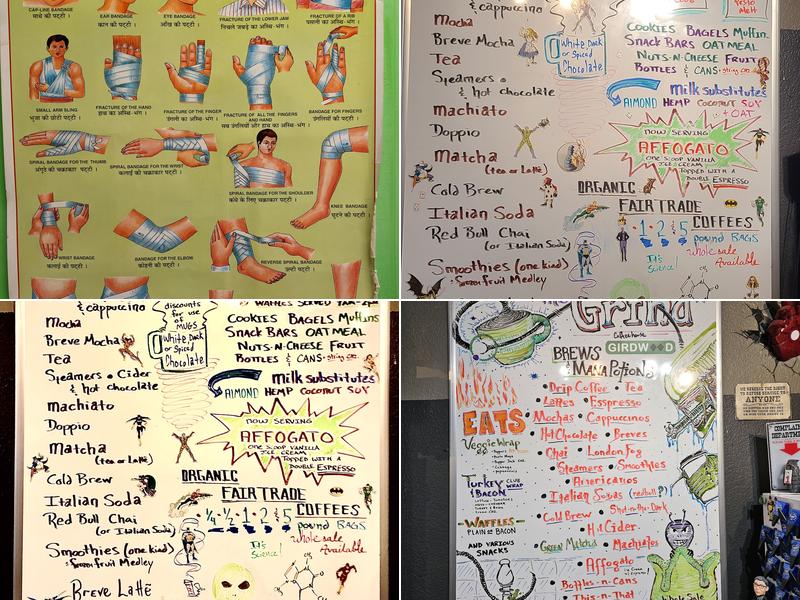 CAP-LINE BANDAGE
EAR BANDAGE
कान की पट्टी ।
EYE BANDAGE
आँख की पट्टी ।
FRACTURE OF THE LOWER JAW
निचले जबड़े का अस्थि-भंग ।
FRACTURE OF A RIB
पसली का अस्थि-भंग ।
SMALL ARM SLING
भुजा की छोटी पट्टी ।
FRACTURE OF THE HAND
हाथ का अस्थि-भंग ।
FRACTURE OF THE FINGER
उंगली का अस्थि-भंग ।
FRACTURE OF ALL THE FINGERS
AND HAND
सब उंगलियों और हाथ का अस्थि-भंग ।
BANDAGE FOR FINGERS
उंगलियों की पट्टी ।
SPIRAL BANDAGE FOR THE THUMB
अंगूठे की चक्राकार पट्टी ।
SPIRAL BANDAGE FOR THE WRIST
कलाई की चक्राकार पट्टी ।
SPIRAL BANDAGE FOR THE SHOULDER
कंधे के लिए चक्राकार पट्टी ।
KNEE BANDAGE
घुटने की पट्टी ।
WRIST BANDAGE
कलाई की पट्टी ।
BANDAGE FOR THE ELBOW
कोहनी की पट्टी ।
REVERSE SPIRAL BANDAGE
उल्टी पट्टी ।
& cappuccino
Mocha
Breve Mocha
Tea
Steamers •
& hot chocolate
Machiato
Doppio
Matcha
(tea or Latte)
Cold Brew
Italian Soda
Red Bull Chai
(or Italian Soda)
Smoothies (one kind)
: Super fruit Medley
White, Dark
or Spiced
Chocolate
Pesto
Melt
COOKIES BAGELS Muffins
SNACK BARS OATMEAL
NUTS-N-CHEESE FRUIT
BOTTLES & CANS
Milk substitutes
ALMOND HEMP COCONUT SOY
+ OAT
NOW SERVING
AFFOGATO
ONE SCOOP VANILLA
ICE CREAM
TOPPED WITH A
DOUBLE ESPRESSO
ORGANIC
FAIR TRADE
COFFEES
1 • 2 & 5 pound BAGS
It's
Science!
wholesale
Available
& cappuccino
Mocha
Breve Mocha
Tea
Steamers • Cider
& hot chocolate
Machiato
Doppio
Matcha
(tea or Latte)
Cold Brew
Italian Soda
Red Bull Chai
(or Italian Soda)
Smoothies (one kind)
: Super fruit Medley
Breve Latte
discounts
for use
of
MUGS
White, Dark
or Spiced
Chocolate
COOKIES BAGELS Muffins
SNACK BARS OATMEAL
NUTS-N-CHEESE FRUIT
BOTTLES & CANS
Milk substitutes
ALMOND HEMP COCONUT SOY
NOW SERVING
AFFOGATO
ONE SCOOP VANILLA
ICE CREAM
TOPPED WITH A
DOUBLE ESPRESSO
ORGANIC
FAIR TRADE
COFFEES
1/4 • 1/2 • 1 • 2 & 5 pound BAGS
It's
Science!
wholesale
Available
Grind
Coffeehouse
GIRDWOOD
BREWS
& MANA POTIONS
• Drip Coffee • Tea
• Lattes • Espresso
• Mochas • Cappuccinos
• Hot Chocolate • Breves
• Chai • London Fog
• Steamers • Smoothies
• Americanos
• Italian Sodas (redbull?)
• Cold Brew • Shot-in-the-Dark
• Hot Cider
• Green Matcha • Machiatos
• Affogato
• Bottles-n-Cans
• This-n-That
EATS
Veggie Wrap
Turkey CLUB
& BACON WRAP
-WAFFLES-
PLAIN or BACON
AND VARIOUS
SNACKS
Whole Sale
WE RESERVE THE RIGHT
TO REFUSE SERVICE TO
ANYONE
COMPLAINT
DEPARTMENT